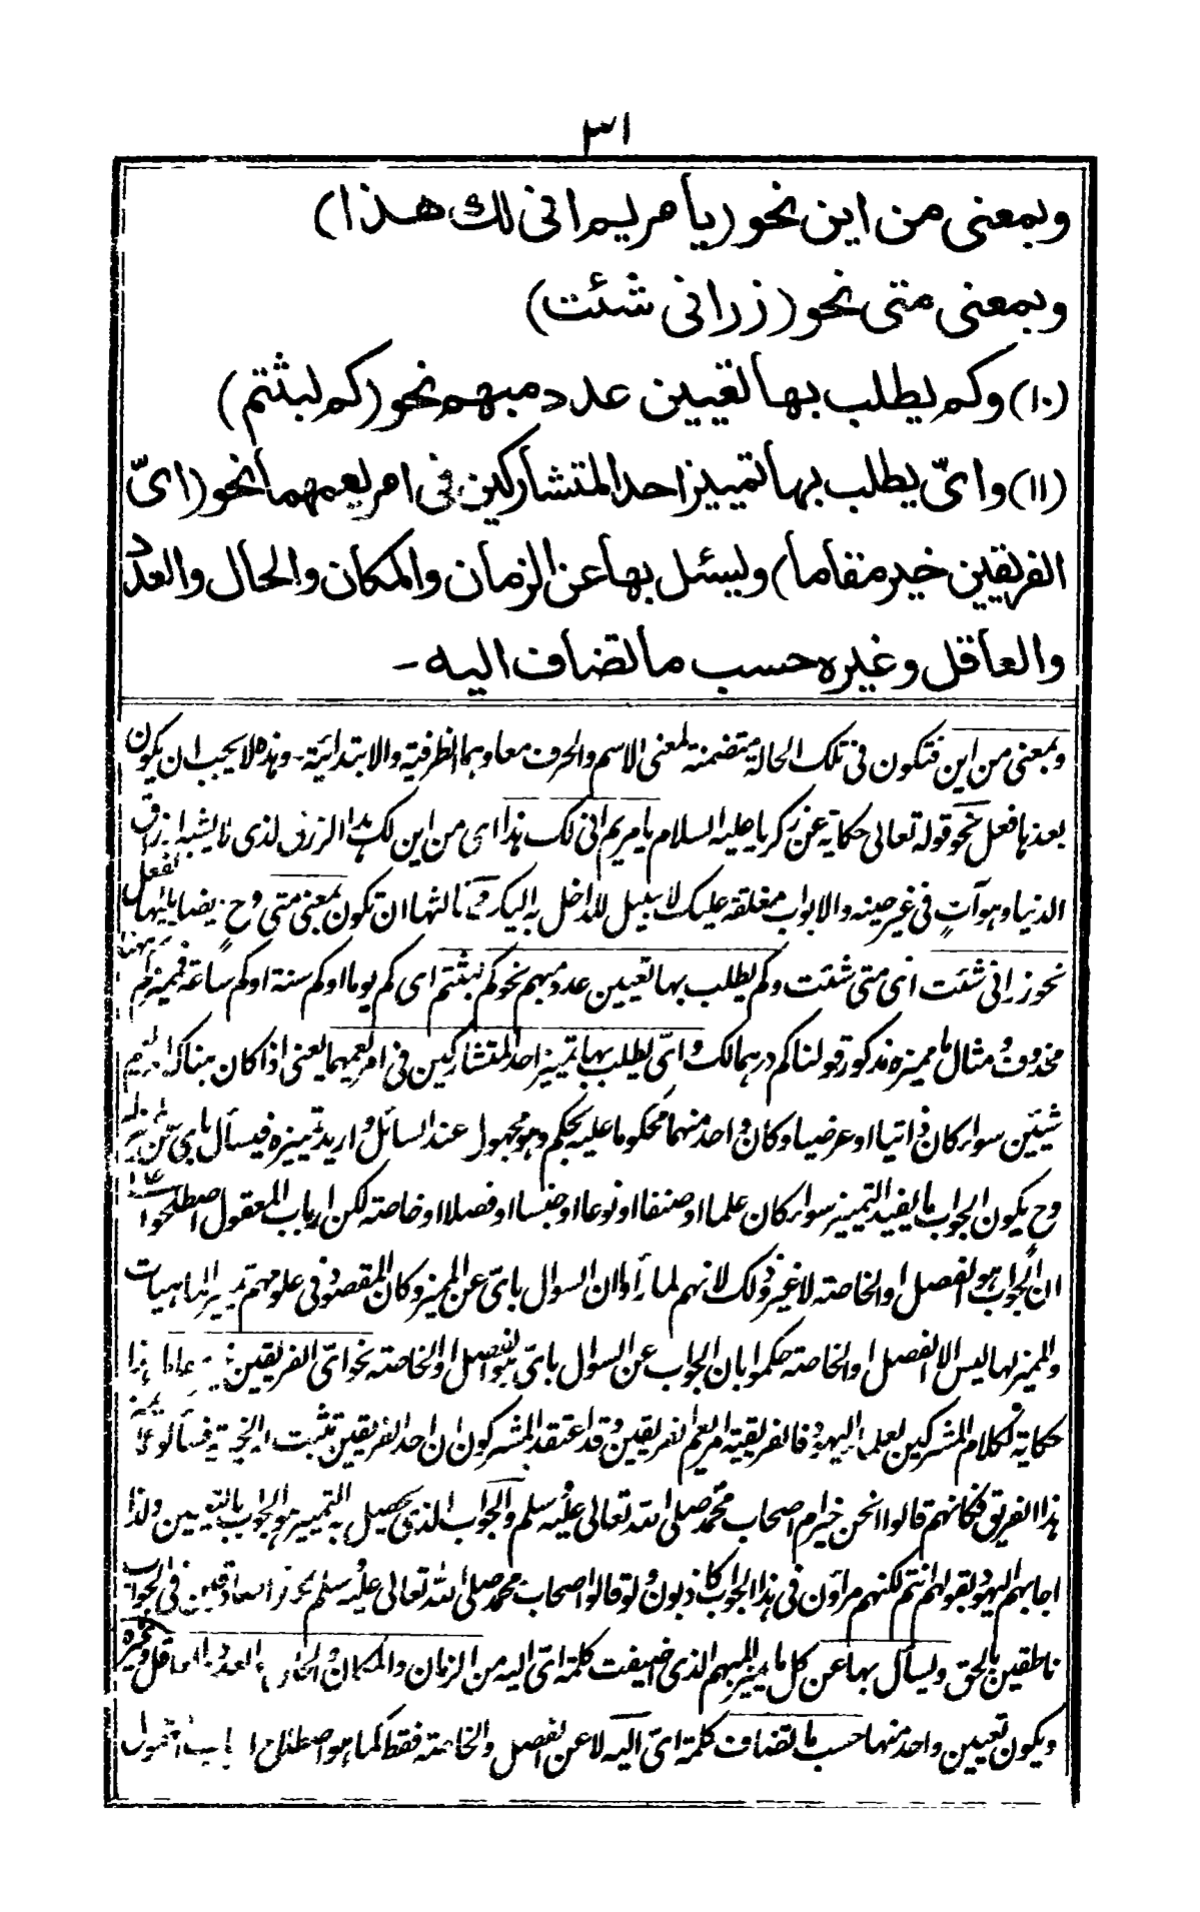 ٣١
وبمعنى من اين نحو (يا مريم انى لك هذا)
وبمعنى متى نحو (زر انى شئت)
(١٠) وكم يطلب بها تعيين عدد مبهم نحو (كم لبثتم)
(١١) واىّ يطلب بها تمييز احد المتشاركين فى امر يعمهما نحو (اىّ
الفريقين خير مقاما) ويسئل بها عن الزمان والمكان والحال والعدد
والعاقل وغيره حسب ما تضاف اليه -
وبمعنى من اين فتكون فى تلك الحالة متضمنة لمعنى الاسم والحرف معا وهما الظرفية والابتدائية - وهذه لا يجب ان يكون
بعدها فعل نحو قوله تعالى حكاية عن زكريا عليه السلام يا مريم انى لك هذا اى من اين لك هذا الرزق الذى لا يشبه ارزاق
الدنيا وهو آتٍ فى غير حينه والابواب مغلقة عليك لا سبيل للداخل به اليك وثالثها ان تكون بمعنى متى وح يضا يليها الفعل
نحو زر انى شئت اى متى شئت وكم يطلب بها تعيين عدد مبهم نحو كم لبثتم اى كم يوما او كم سنة او كم ساعة فمميز كم ههنا
محذوف مثال ما مميزه مذكور قولنا كم درهما لك واىّ يطلب بها تمييز احد المتشاركين فى امر يعمهما يعنى اذا كان هناك امر يعم
شيئين سواء كان ذاتيا او عرضيا وكان واحد منهما محكوما عليه بحكم وهو مجهول عند السائل واريد تمييزه فيسأل باىّ عن
وح يكون الجواب ما يفيد التمييز سواء كان علما او صنفا او نوعا او جنسا او فصلا او خاصة لكن ارباب المعقول اصطلحوا على
ان الجواب هو الفصل او الخاصة لا غير وذلك لانهم لما رأوا ان السوال باىّ عن المميز وكان المقصود فى علومهم تمييز الماهيات
والمميز لها ليس الا الفصل او الخاصة حكموا بان الجواب عن السوال باىّ هو الفصل او الخاصة نحو اىّ الفريقين خير مقاما هذا
حكاية لكلام المشركين لعلماء اليهود فالفريقية امر يعم الفريقين وقد اعتقد المشركون ان احد الفريقين تثبت له الخيرية فسألوا عما يميز
هذا الفريق فكانهم قالوا انحن خير ام اصحاب محمد صلى الله تعالى عليه وسلم والجواب الذى يحصل به التمييز هو الجواب بالتعيين ولذا
اجابهم اليهود بقولهم انتم لكنهم مراؤن فى هذا الجواب كاذبون ولو قالوا اصحاب محمد صلى الله تعالى عليه وسلم لكانوا صادقين فى الجواب
ناطقين بالحق ويسأل بها عن كل ما يميز المبهم الذى اضيفت كلمة اىّ اليه من الزمان والمكان والحال والعدد والعاقل وغيره
ويكون تعيين واحد منها حسب ما تضاف كلمة اىّ اليه لا عن الفصل والخاصة فقط كما هو اصطلاح ارباب المعقول